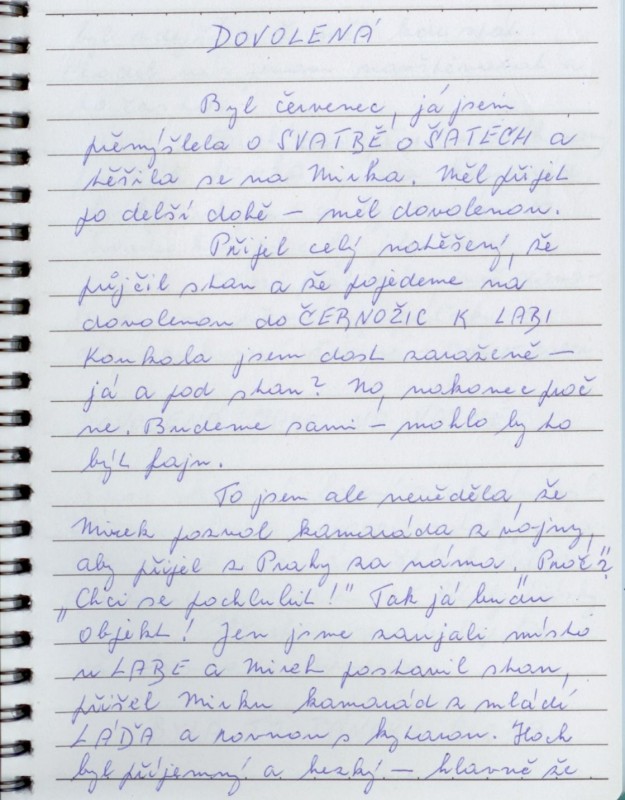 DOVOLENÁ
Byl červenec, já jsem
přemýšlela o SVATBĚ o ŠATECH a
těšila se na Mirka. Měl přijet
po delší době – měl dovolenou.
Přijel celý natěšený, že
půjčil stan a že pojedeme na
dovolenou do ČERNOŽIC K LABI
Koukala jsem dost zaraženě –
já a pod stan? No, nakonec proč
ne. Budeme sami – mohlo by to
být fajn.
To jsem ale nevěděla, že
Mirek pozval kamaráda z vojny,
aby přijel z Prahy za náma. Proč?
„Chci se pochlubit!" Tak já budu
objekt! Jen jsme zaujali místo
u LABE a Mirek postavil stan,
přišel Mirku kamarád z mládí
LÁĎA a rovnou s kytarou. Hoch
byl příjemný a hezký – hlavně že